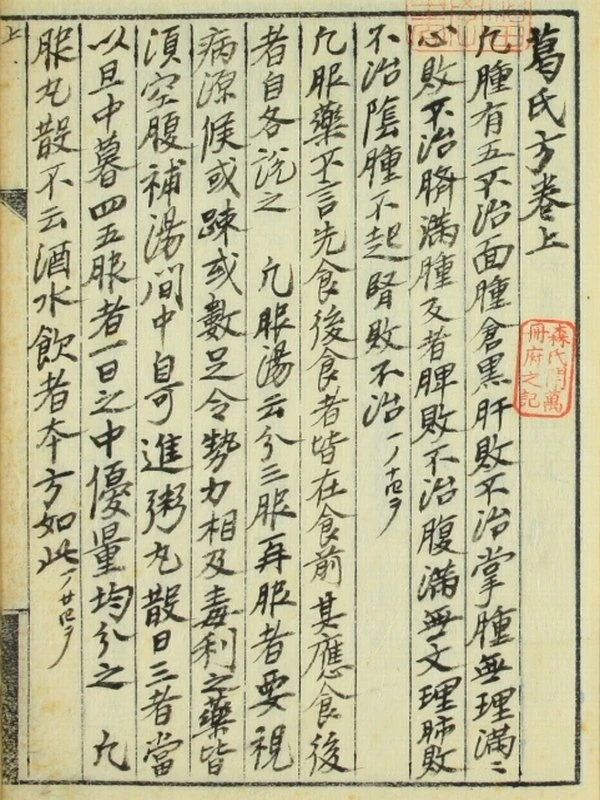 葛氏方卷上
凡腫有五不治面腫倉黒肝敗不治掌腫無理滿〻
心敗不治臍滿腫反者脾敗不治腹滿無文理肺敗
不治陰腫不起腎敗不治
凡服藥不言先食後食者皆在食前其應食後
者自各說之 凡服湯云分三服再服者要視
病源候或踈或數足令勢力相及毒利之藥皆
須空腹補湯間中自可進粥丸散日三者當
以旦中暮四五服者一日之中優量均分之 凡
服丸散不云酒水飲者本方如此
上
森氏開萬
冊府之記